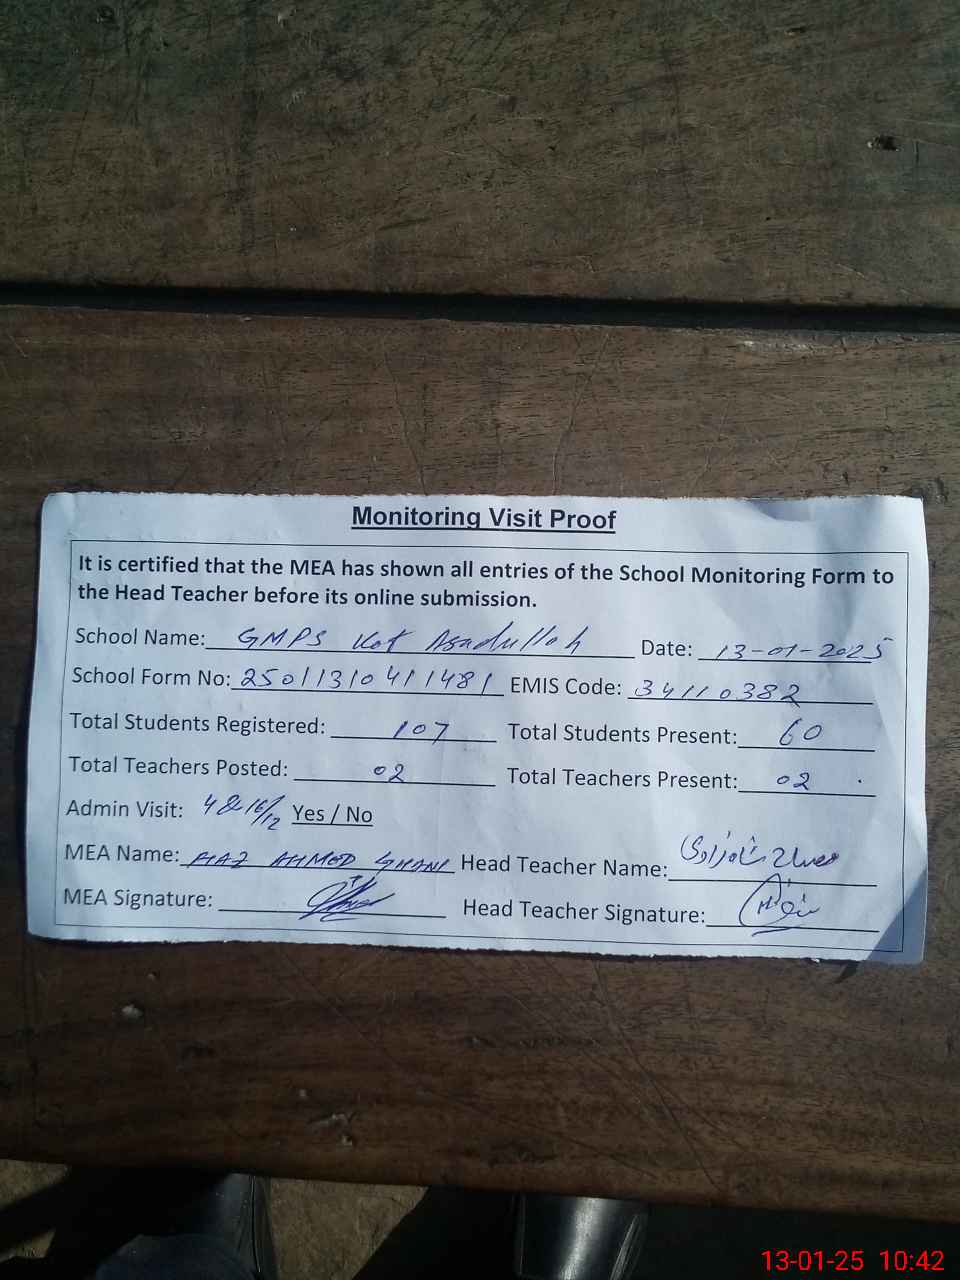 Monitoring Visit Proof
It is certified that the MEA has shown all entries of the School Monitoring Form to
the Head Teacher before its online submission.
School Name: GMPS Kot Asadullah Date: 13-01-2025
School Form No: 25011310411481 EMIS Code: 34110382
Total Students Registered: 107 Total Students Present: 60
Total Teachers Posted: 02 Total Teachers Present: 02
Admin Visit: 4 & 16/12 Yes / No
MEA Name: AHMED GHANI Head Teacher Name:
MEA Signature: Head Teacher Signature:
13-01-25 10:42